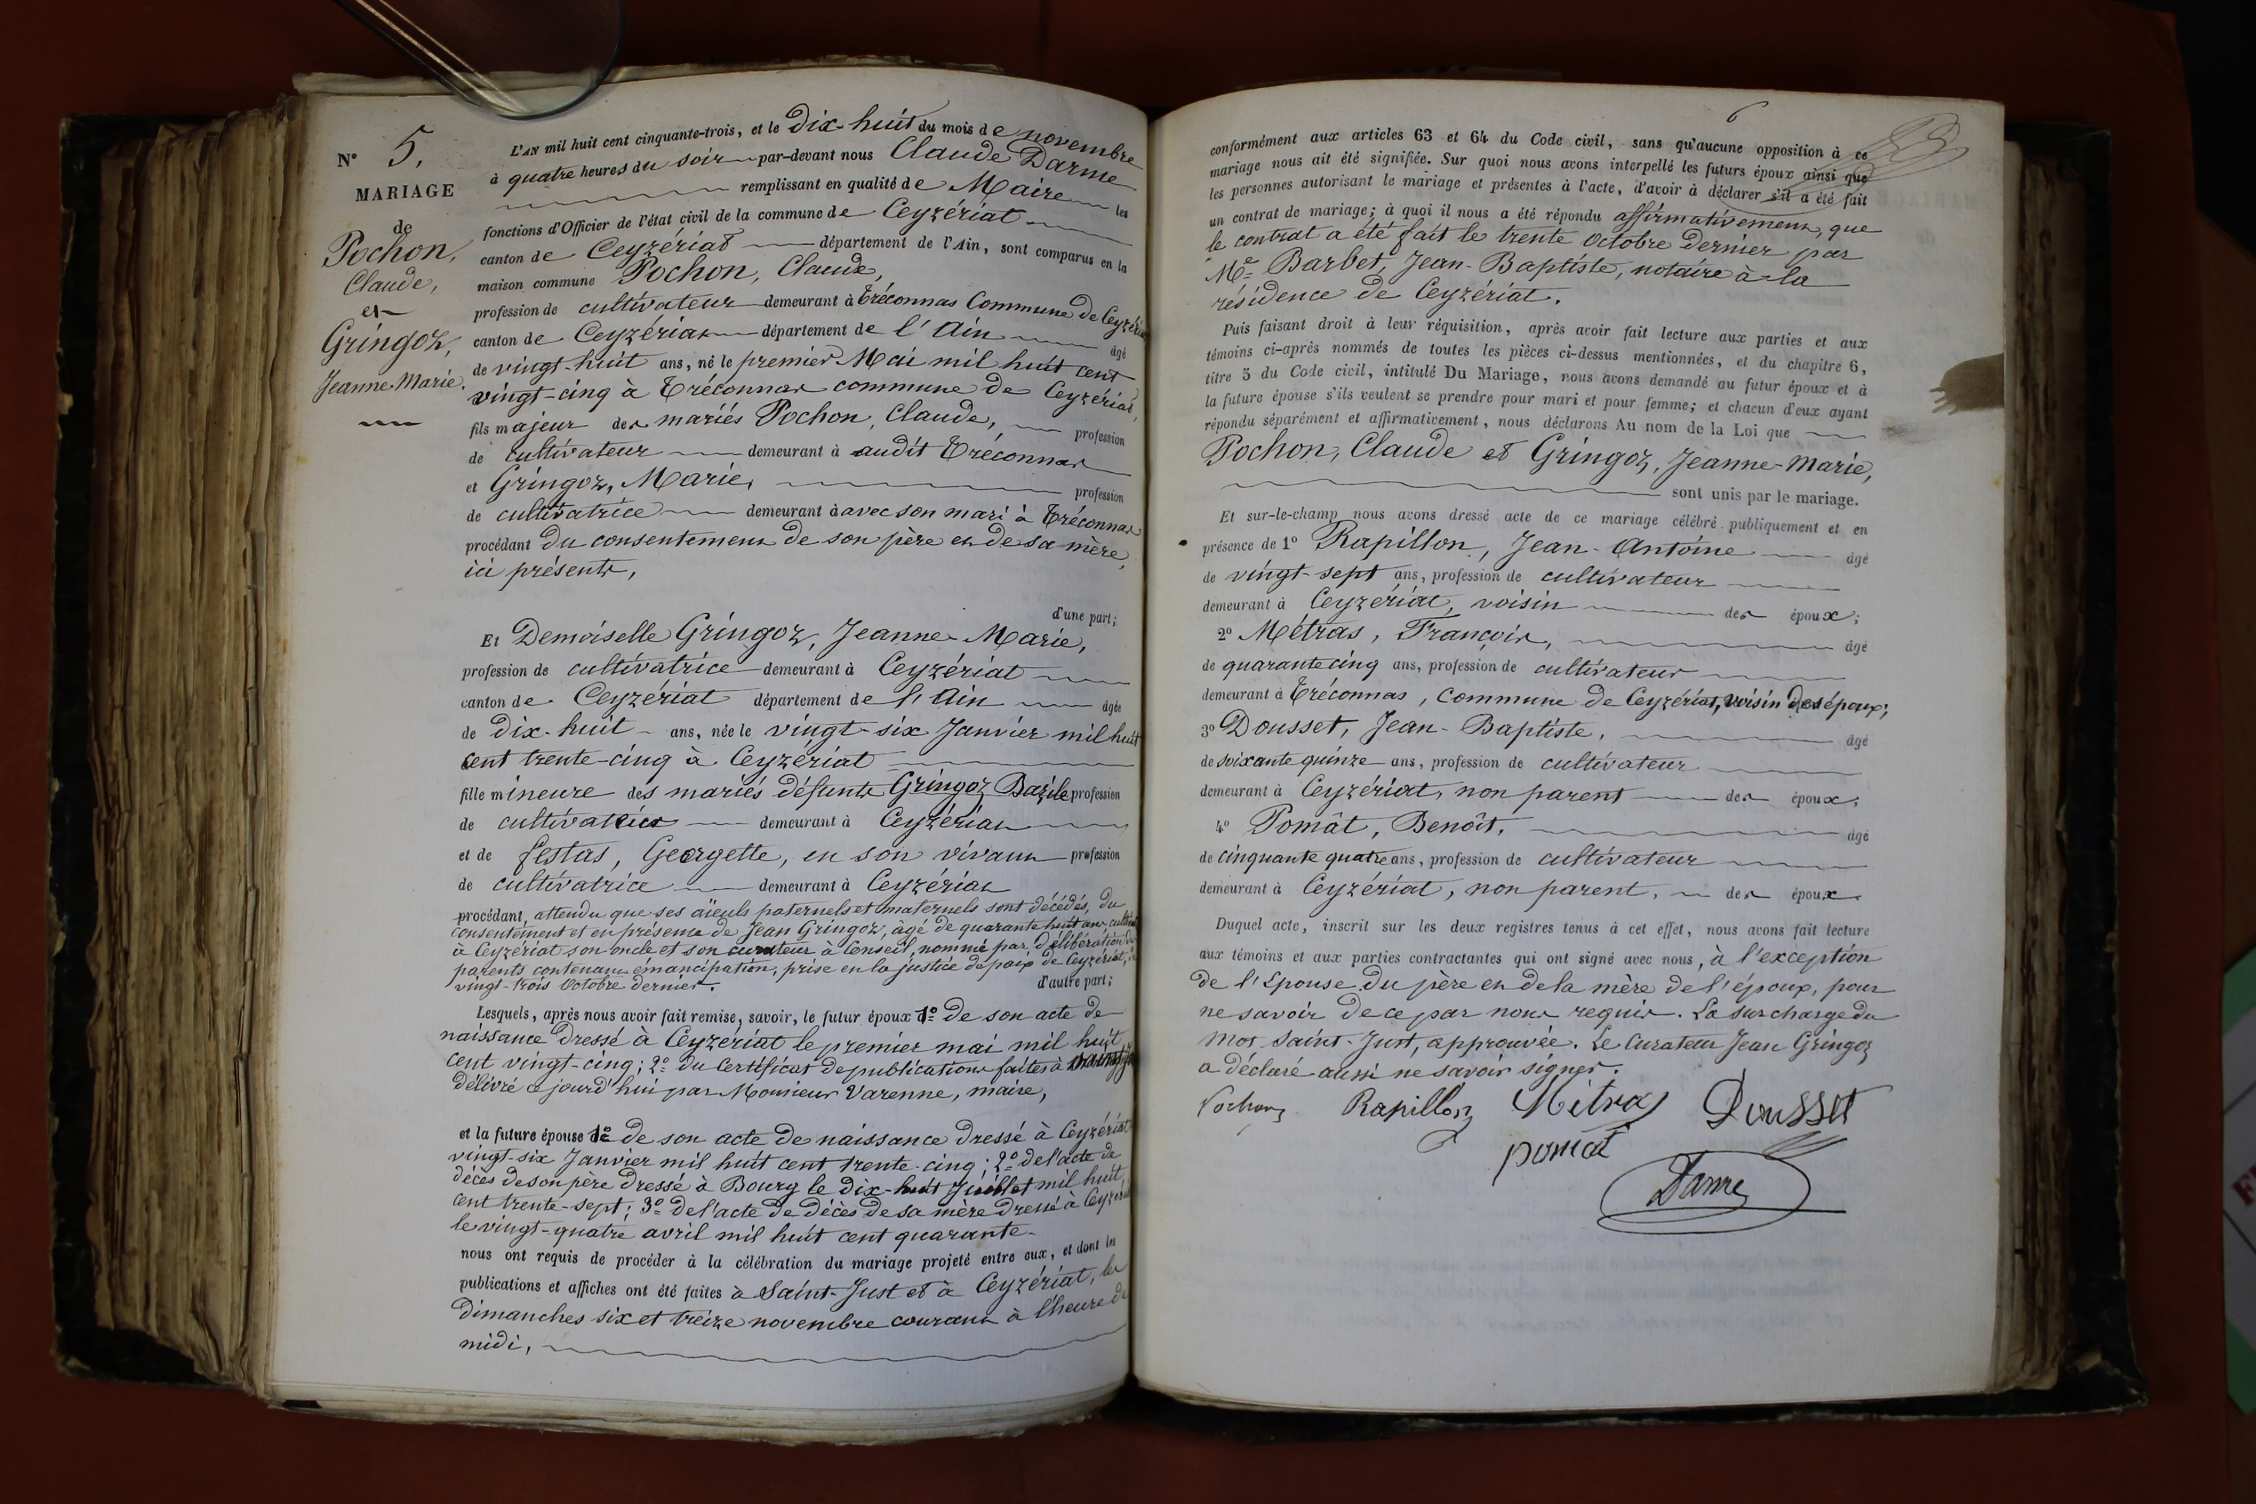 N° 5.
MARIAGE
de
Pochon,
Claude,
et
Gringoz,
Jeanne-Marie.
L'AN mil huit cent cinquante-trois, et le Dix-huit du mois de novembre
à quatre heures du soir par-devant nous Claude Darme
remplissant en qualité de Maire les
fonctions d'Officier de l'état civil de la commune de Ceyzériat
canton de Ceyzériat département de l'Ain, sont comparus en la
maison commune Pochon, Claude,
profession de cultivateur demeurant à Tréconnas Commune de Ceyzériat
canton de Ceyzériat département de l'Ain âgé
de vingt-huit ans, né le premier Mai mil huit cent
vingt-cinq à Tréconnas commune de Ceyzériat,
fils majeur des mariés Pochon, Claude, profession
de cultivateur demeurant à audit Tréconnas
et Gringoz, Marie, profession
de cultivatrice demeurant à avec son mari à Tréconnas
procédant du consentement de son père et de sa mère,
ici présents,
d'une part;
Et Demoiselle Gringoz, Jeanne-Marie,
profession de cultivatrice demeurant à Ceyzériat
canton de Ceyzériat département de l'Ain âgée
de Dix-huit ans, née le vingt-six Janvier mil huit
cent trente-cinq à Ceyzériat
fille mineure des mariés défunts Gringoz Bazile profession
de demeurant à Ceyzériat
et de festas, Georgette, en son vivant profession
de cultivatrice demeurant à Ceyzériat
procédant, attendu que ses aïeuls paternels et maternels sont décédés, du
consentement et en présence de Jean Gringoz, âgé de quarante huit ans,
à Ceyzériat son oncle et son curateur à Conseil, nommé par délibération de
parents contenant émancipation, prise en la justice de paix de Ceyzériat, le
vingt-trois Octobre dernier. d'autre part;
Lesquels, après nous avoir fait remise, savoir, le futur époux 1° De son acte de
naissance Dressé à Ceyzériat le premier mai mil huit
cent vingt-cinq; 2° Du Certificat de publications faites à
délivré ce jourd'hui par Monsieur Varenne, maire,
et la future épouse 1° De son acte de naissance Dressé à Ceyzériat
vingt-six Janvier mil huit cent trente-cinq; 2° de l'acte de
décès de son père Dressé à Bourg le Dix-huit Juillet mil huit
cent trente-sept; 3° de l'acte de décès de sa mère Dressé à Ceyzériat
le vingt-quatre avril mil huit cent quarante.
nous ont requis de procéder à la célébration du mariage projeté entre eux, et dont les
publications et affiches ont été faites à Saint-Just et à Ceyzériat, les
Dimanches six et treize novembre courant à l'heure de
midi,
6
conformément aux articles 63 et 64 du Code civil, sans qu'aucune opposition à ce
mariage nous ait été signifiée. Sur quoi nous avons interpellé les futurs époux ainsi que
les personnes autorisant le mariage et présentes à l'acte, d'avoir à déclarer s'il a été fait
un contrat de mariage; à quoi il nous a été répondu affirmativement, que
le contrat a été fait le trente Octobre Dernier par
Me Barbet, Jean-Baptiste, notaire à la
résidence de Ceyzériat.
Puis faisant droit à leur réquisition, après avoir fait lecture aux parties et aux
témoins ci-après nommés de toutes les pièces ci-dessus mentionnées, et du chapitre 6,
titre 5 du Code civil, intitulé Du Mariage, nous avons demandé au futur époux et à
la future épouse s'ils veulent se prendre pour mari et pour femme; et chacun d'eux ayant
répondu séparément et affirmativement, nous déclarons Au nom de la Loi que
Pochon, Claude et Gringoz, Jeanne-Marie,
sont unis par le mariage.
Et sur-le-champ nous avons dressé acte de ce mariage célébré publiquement et en
présence de 1° Rapillon, Jean-Antoine âgé
de vingt-sept ans, profession de cultivateur
demeurant à Ceyzériat, voisin des époux;
2° Métras, François, âgé
de quarante cinq ans, profession de cultivateur
demeurant à Tréconnas, Commune de Ceyzériat, voisin des époux;
3° Dousset, Jean-Baptiste, âgé
de soixante quinze ans, profession de cultivateur
demeurant à Ceyzériat, non parent des époux;
4° Pomât, Benoît, âgé
de cinquante quatre ans, profession de cultivateur
demeurant à Ceyzériat, non parent, des époux
Duquel acte, inscrit sur les deux registres tenus à cet effet, nous avons fait lecture
aux témoins et aux parties contractantes qui ont signé avec nous, à l'exception
de l'Epouse, Du père et de la mère de l'époux, pour
ne savoir De ce par nous requis. La surcharge du
mot Saint-Just, approuvée. Le Curateur Jean Gringoz
a déclaré aussi ne savoir signer.
Pochon Rapillon Métras Dousset
pomat
Darme